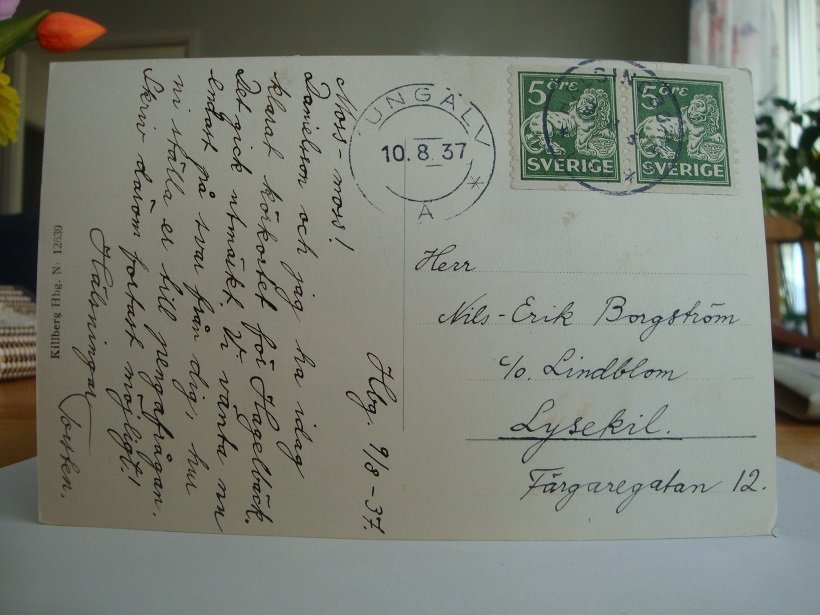 Hbg. 9/8-37.
Moss-moss!
Danielsson och jag ha idag
klarat körkortet för Hagelbäck.
Det gick utmärkt. Vi vänta nu
endast på svar från dig, hur
ni ställa er till pengafrågan.
Skriv därom fortast möjligt!
Hälsningar
Torsten.
Killberg Hbg. N 12639
UNGÄLV
10.8.37
A
5 ÖRE
SVERIGE
5 ÖRE
SVERIGE
Herr
Nils-Erik Borgström
c/o. Lindblom
Lysekil.
Färgaregatan 12.